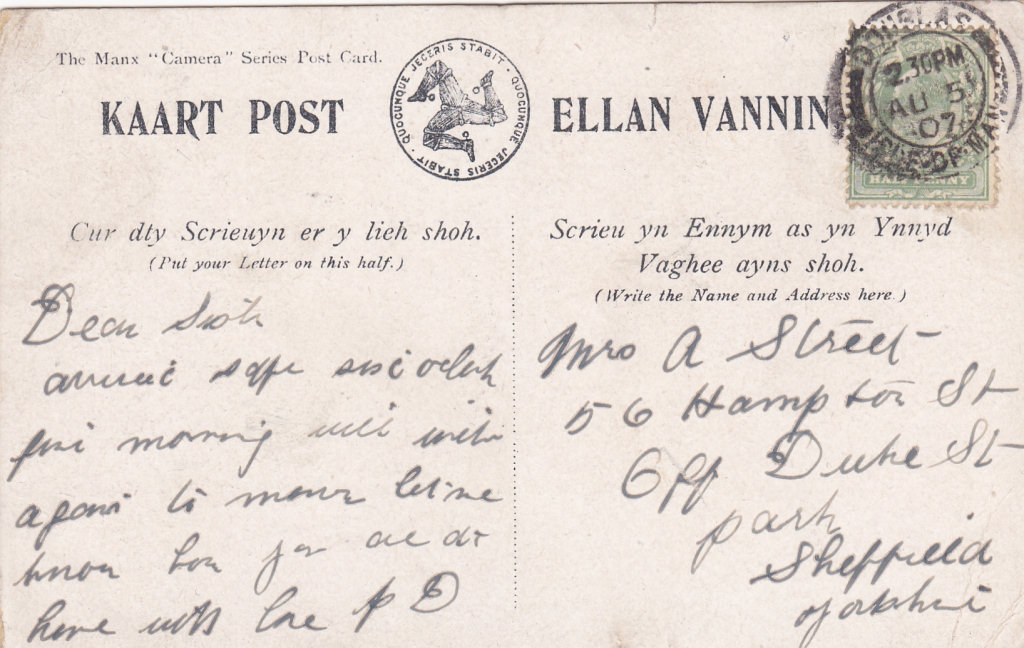 The Manx "Camera" Series Post Card.
KAART POST
QUOCUNQUE JECERIS STABIT · QUOCUNQUE JECERIS STABIT ·
ELLAN VANNIN
DOUGLAS
2.30PM
AU 5
07
ISLE-OF-MAN
HALFPENNY
Cur dty Scrieuyn er y lieh shoh.
(Put your Letter on this half.)
Scrieu yn Ennym as yn Ynnyd
Vaghee ayns shoh.
(Write the Name and Address here.)
Dear
safe oclock
morning will write
again to let me
know how are at
home with love
Mrs A Street
56 Hampton St
Off Duke St
park
Sheffield
Yorkshire